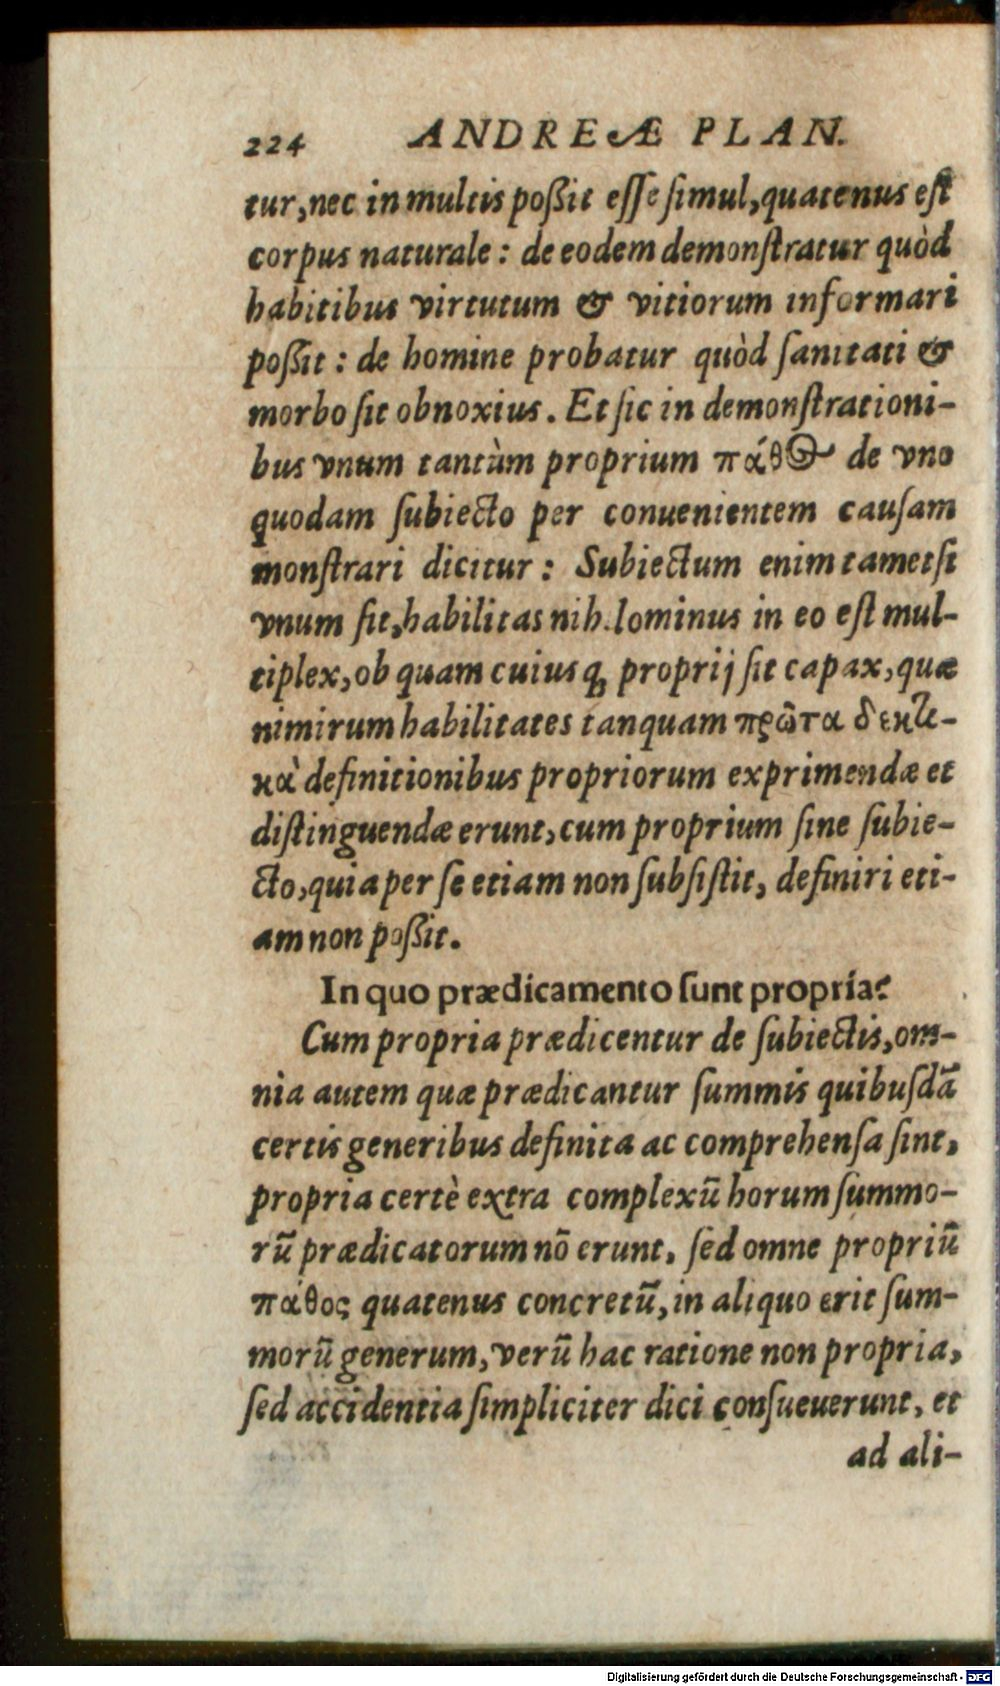 224 ANDREÆ PLAN.
tur, nec in multis poßit eſſe ſimul, quatenus eſt
corpus naturale: de eodem demonſtratur quòd
habitibus virtutum & vitiorum informari
poßit: de homine probatur quòd ſanitati &
morbo ſit obnoxius. Et ſic in demonſtrationi-
bus vnum tantùm proprium πάθος de vno
quodam ſubiecto per conuenientem cauſam
monſtrari dicitur: Subiectum enim tametſi
vnum ſit, habilitas nih.lominus in eo eſt mul-
tiplex, ob quam cuiusq́; proprij ſit capax, quæ
nimirum habilitates tanquam πρῶτα δεκτι-
κὰ definitionibus propriorum exprimendæ et
diſtinguendæ erunt, cum proprium ſine ſubie-
cto, quia per ſe etiam non ſubſiſtit, definiri eti-
am non poßit.
In quo prædicamento ſunt propria?
Cum propria prædicentur de ſubiectis, om-
nia autem quæ prædicantur ſummis quibuſdā
certis generibus definita ac comprehenſa ſint,
propria certè extra complexū horum ſummo-
rū prædicatorum nō erunt, ſed omne propriū
πάθος quatenus concretū, in aliquo erit ſum-
morū generum, verū hac ratione non propria,
ſed accidentia ſimpliciter dici conſueuerunt, et
ad ali-
Digitalisierung gefördert durch die Deutsche Forschungsgemeinschaft - DFG